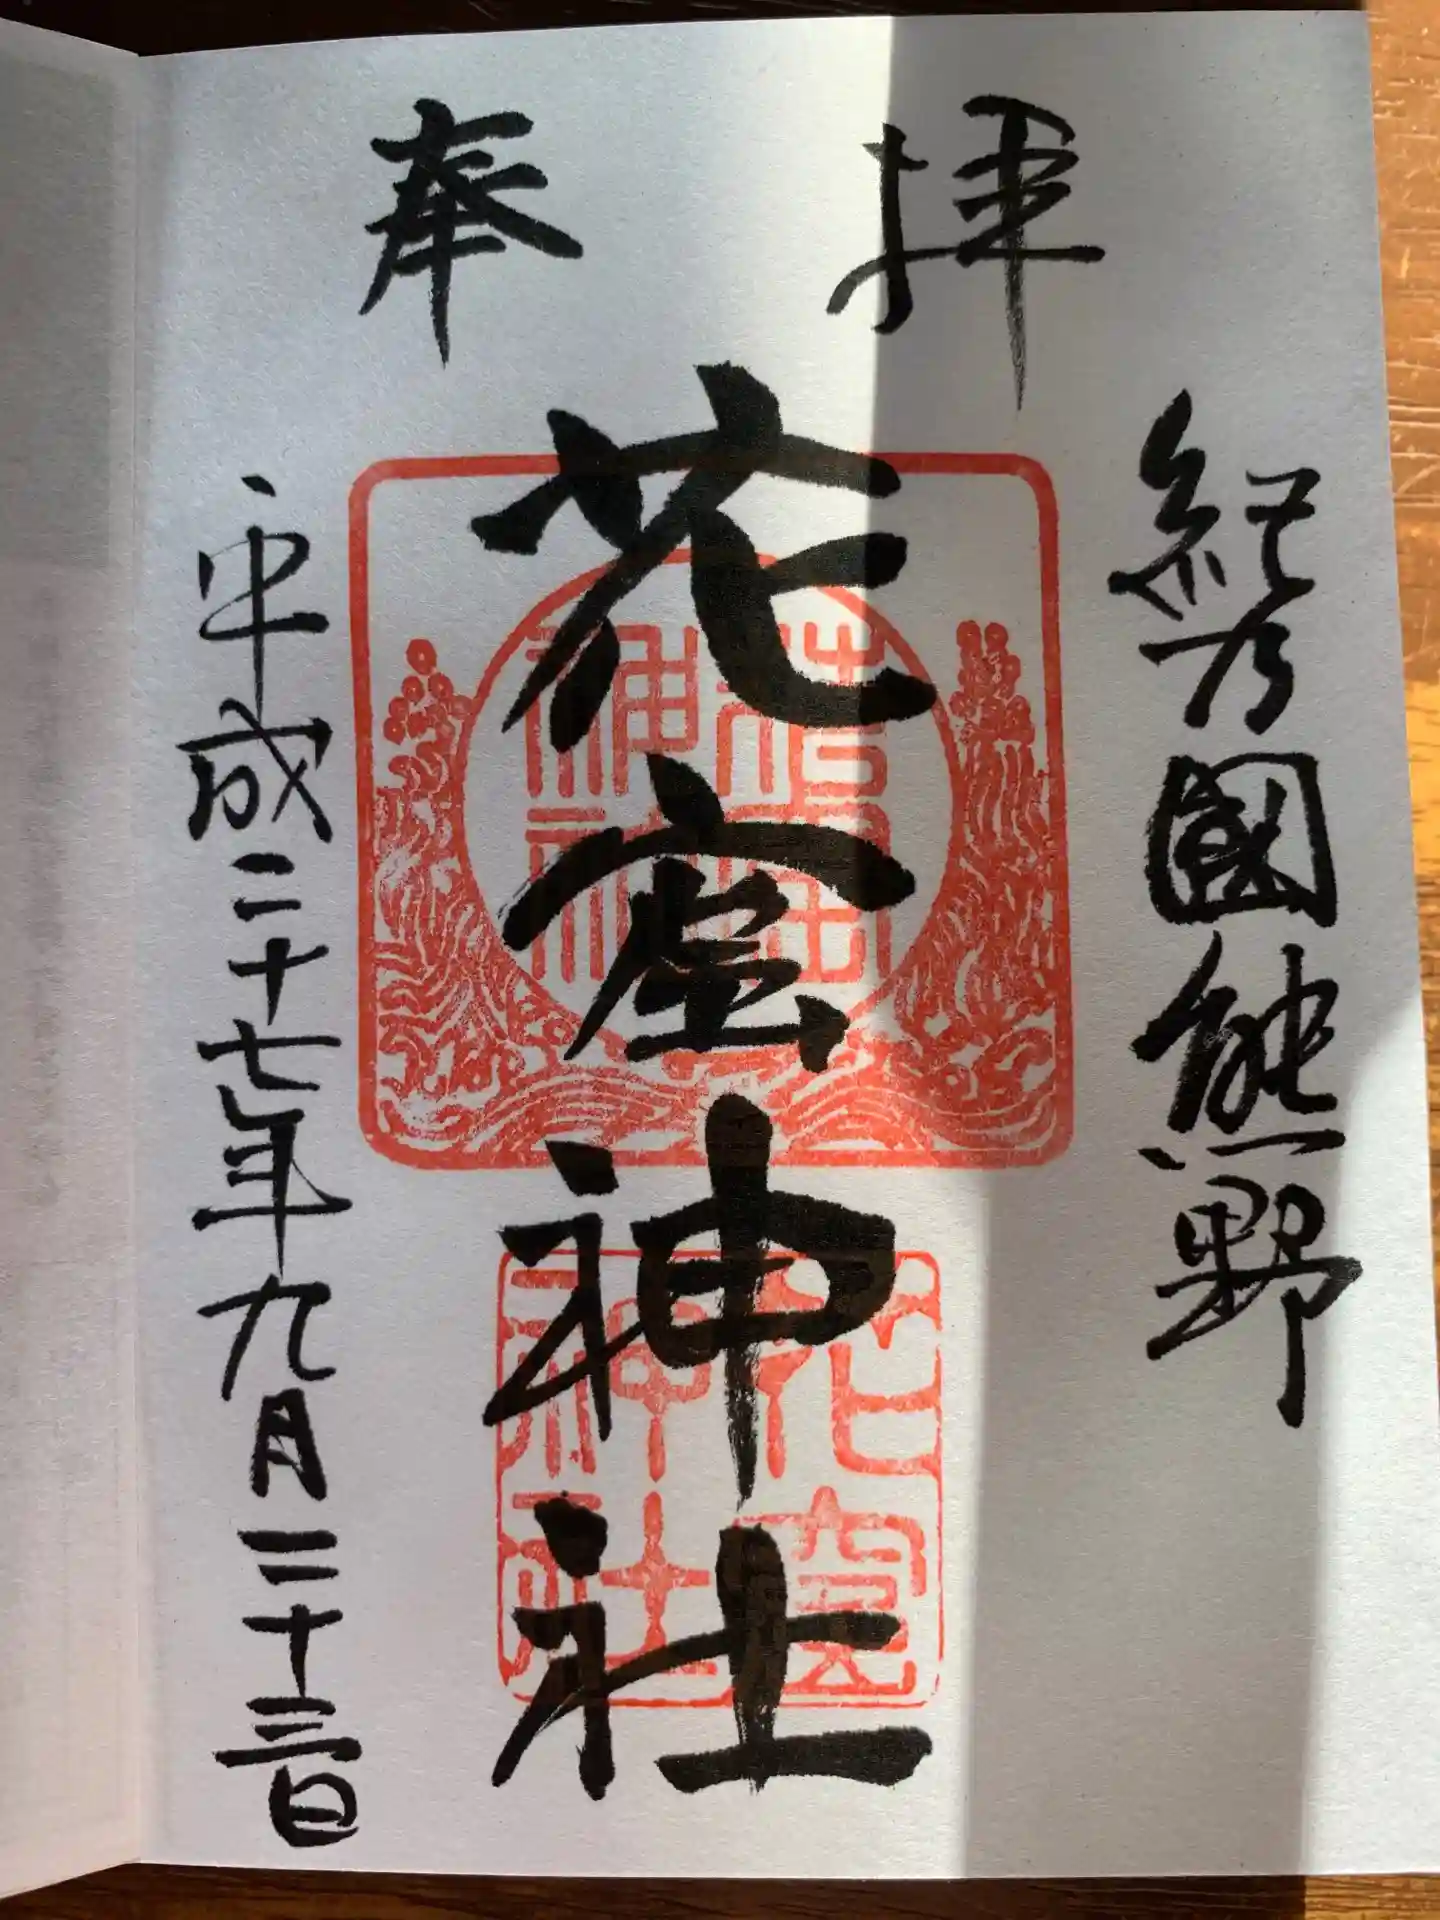 奉拝
紀乃國熊野
花窟神社
花窟
神社
平成二十七年九月二十三日